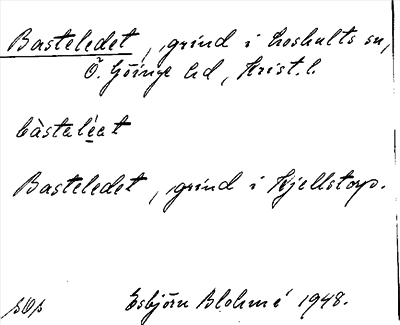 Basteledet, grind i Loshults sn,
Ö. Göinge hd, Krist. l.
bàstalét
Basteledet, grind i Kjellstorp.
sOs Esbjörn Blohmé 1948.